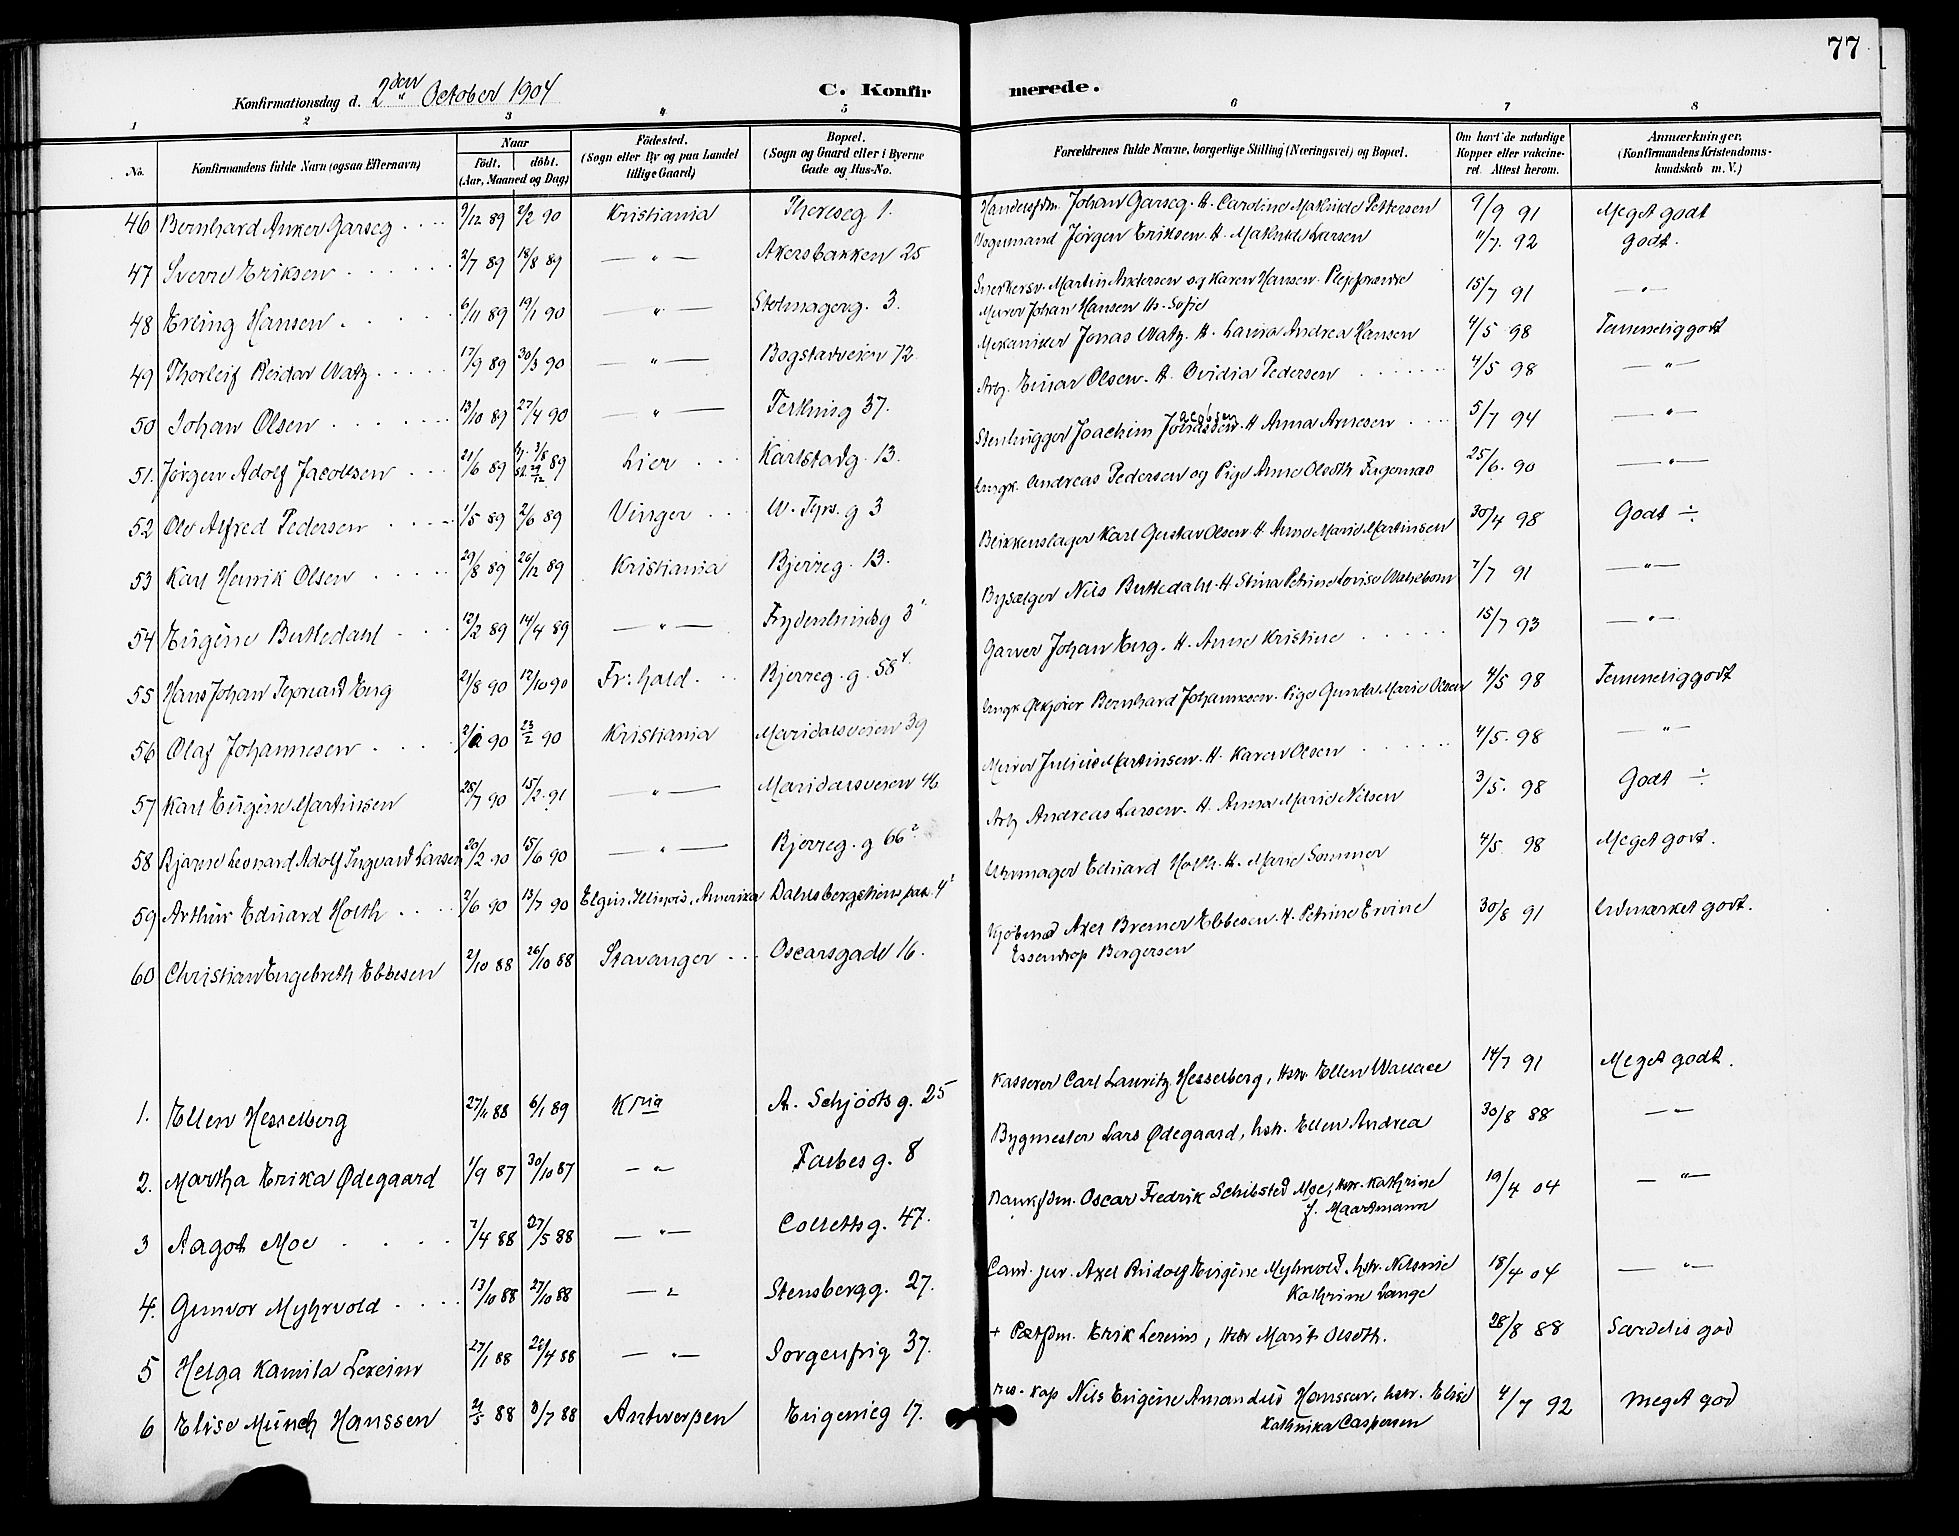 77
Konfirmationsdag d. 2den October 1904
C. Konfir merede.
1 2 3 4 5 6 7 8
No. Konfirmandens fulde Navn (ogsaa Efternavn) Naar födt. döbt. (Aar, Maaned og Dag) Födested. (Sogn eller By og paa Landet tillige Gaard) Bopæl. (Sogn og Gaard eller i Byerne Gade og Hus-No. Forældrenes fulde Navne, borgerlige Stilling (Næringsvei) og Bopæl. Om havt de naturlige Kopper eller vakcineret. Attest herom. Anmærkninger. (Konfirmandens Kristendomskundskab m. V.)
46 Bernhard Anker Garseg 9/12 89 2/2 90 Kristiania Thereseg 1. Handelsfm. Johan Garseg. H. Caroline Mathilde Pettersen 9/9 91 Meget godt
47 Sverre Eriksen 2/7 89 18/8 89 — " — Akersbakken 25 Vognmand Jörgen Eriksen. H. Mathilde Larsen 11/7. 92 Godt.
48 Erling Hansen 6/11 89 19/1 90 — " — Stolmagerg. 3. Snekkersv. Martin Andersen og Karen Hansen. Plejeforældre
Murer Johan Hansen Hs. Sofie 15/7 91 — " —
49 Thorleif Reidar Watz 17/9 89 30/3 90 — " — Bogstadveien 72 Mekaniker Jonas Watz. H. Laura Andrea Hansen 4/5 98 Temmelig godt
50 Johan Olsen 13/10 89 27/4 90 — " — Terkinig 37. Arb. Einar Olsen. H. Ovidia Pedersen 4/5 98 — " —
51. Jörgen Adolf Jacobsen 21/6 89 3/8 29/12 89 Lier Karlstadg. 13. Stenhugger Joachim Jacobsen H Anna Arnesen 5/7 94 — " —
52 Ole Alfred Pedersen 1/5 89 2/6 89 Vinger W. Thrs. g 3 Ungk. Andreas Pedersen og Pige Anne Olsdth Fagernæs 25/6. 90 — " —
53 Karl Henrik Olsen 29/8 89 26/12 89 Kristiania Bjerreg. 13. Blikkenslager Karl Gustav Olsen H Anne Marie Martinsen 30/4 98 Godt ÷
54 Eugéne Buttedahl 12/2 89 14/4 89 — " — Frydenlundsg 3 Bysælger Nils Buttedahl. H Stina Petrine Lovise 7/7 91 — " —
55 Hans Johan Eng 21/8 90 12/10 90 Fr: hald. Bjerreg. g. 58 Garver Johan Eng. H. Anne Kristine 15/7 93 — " —
56 Olaf Johannesen 90 23/2 90 Kristiania Maridalsveien 39 Ungk. Bernhard Johannesen. Pige Gunda Marie Olsen 4/5 98 Temmelig godt
57 Karl Eugéne Martinsen 28/7 90 15/2. 91 — " — Maridalsveien 46 Murer Julius Martinsen. H. Karen Olsen 4/5. 98 — " —
58 Bjarne Leonard Adolf Ingvard Larsen 20/2 90 15/6 90 — " — Bjerreg. g 66² Arb Andreas Larsen. H. Anna Marie Nilsen 3/5. 98 Godt ÷
59 Arthur Eduard Holth 2/6 90 13/7 90 Elgin, Illinois, Amerika Dahlsbergstien 4² Uhrmager Eduard Holth. H. Marie Sommer 4/5 98 Meget godt.
60 Christian Engebreth Ebbesen 2/10 88 26/10 88 Stavanger Oscarsgade 16. Kjöbmd Axel Bremer Ebbesen. H. Petrine Ervine
Essendrop Bergersen 30/8 91 Udmærket godt.
1. Ellen Hesselberg 27/11 88 6/1 89 Kria A. Schjödts g. 25 Kasserer Carl Lauritz Hesselberg, Hstr. Ellen Wallace 14/7 91 Meget godt.
2. Martha Erika Ødegaard 1/9 87 30/10 87 — " — Falbes g. 8 Bygmester Lars Ødegaard, hstr. Ellen Andrea 30/8 88 — " —
3 Aagot Moe 7/4 88 27/5 88 — " — Colletts g. 47. Bankfm. Oscar Fredrik Schibsted Moe, Hstr. Kathrine
f. Maartmann 19/4 04 — " —
4. Gunvor Myhrvold 13/10 88 27/10 88 — " — Stensbergg. 27. Cand. jur. Axel Rudolf Eugéne Myhrvold, hstr. Nilsine
Kathrine Lange 18/4 04 — " —
5 Helga Kamila Lexeim 27/1 88 26/4 88 — " — Sorgenfrig 37. + Erik Lexeim, Hstr Marit Olsdth. 28/8 88 Særdeles god
6 Elise Münch Hanssen 21/5 88 8/7 88 Antwerpen Eugenieg 17. res. kap Nils Eugéne Amandus Hanssen, hstr. Elise
Kathinka Caspersen 4/7 92 Meget god